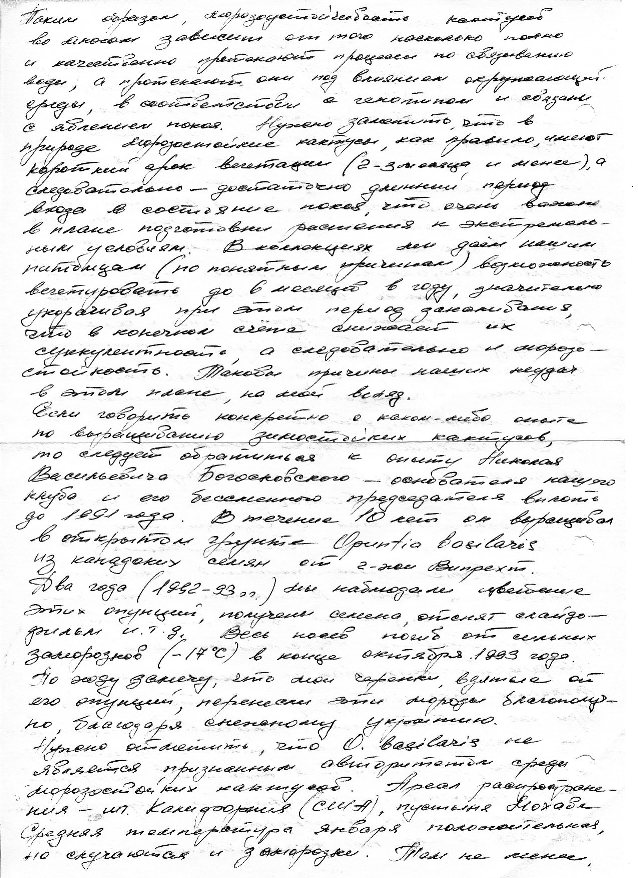 Таким образом, морозоустойчивость кактусов
во многом зависит от того насколько полно
и качественно протекают процессы по связыванию
воды, а протекают они под влиянием окружающей
среды, в соответствии с генотипом и связаны
с явлением покоя. Нужно заметить, что в
природе морозостойкие кактусы, как правило, имеют
короткий срок вегетации (2-3 месяца и менее), а
следовательно – достаточно длинный период
входа в состояние покоя, что очень важно
в плане подготовки растения к экстремаль-
ным условиям. В коллекциях мы даём нашим
питомцам (по понятным причинам) возможность
вегетировать до 6 месяцев в году, значительно
укорачивая при этом период закаливания,
что в конечном счёте снижает их
суккулентность, а следовательно и морозо-
стойкость. Таковы причины наших неудач
в этом плане, на мой взгляд.
Если говорить конкретно о каком-либо опыте
по выращиванию зимостойких кактусов,
то следует обратиться к опыту Николая
Васильевича Богословского – основателя нашего
клуба и его бессменного председателя вплоть
до 1991 года. В течение 10 лет он выращивал
в открытом грунте Opuntia basilaris
из канадских семян от г-жи Випрехт.
Два года (1992-93 гг.) мы наблюдали цветение
этих опунций, получены семена, отснят слайдо-
фильм и.т.д. Весь посев погиб от сильных
заморозков (-17°С) в конце октября 1993 года
По ходу замечу, что мои черенки, взятые от
его опунций, перенесли эти морозы благополуч-
но, благодаря снежному укрытию.
Нужно отметить, что O. basilaris не
является признанным авторитетом среды
морозостойких кактусов. Ареал распростране-
ния – шт. Калифорния (США), пустыня Мохаве
Средняя температура января положительная,
но случаются и заморозки. Тем не менее,